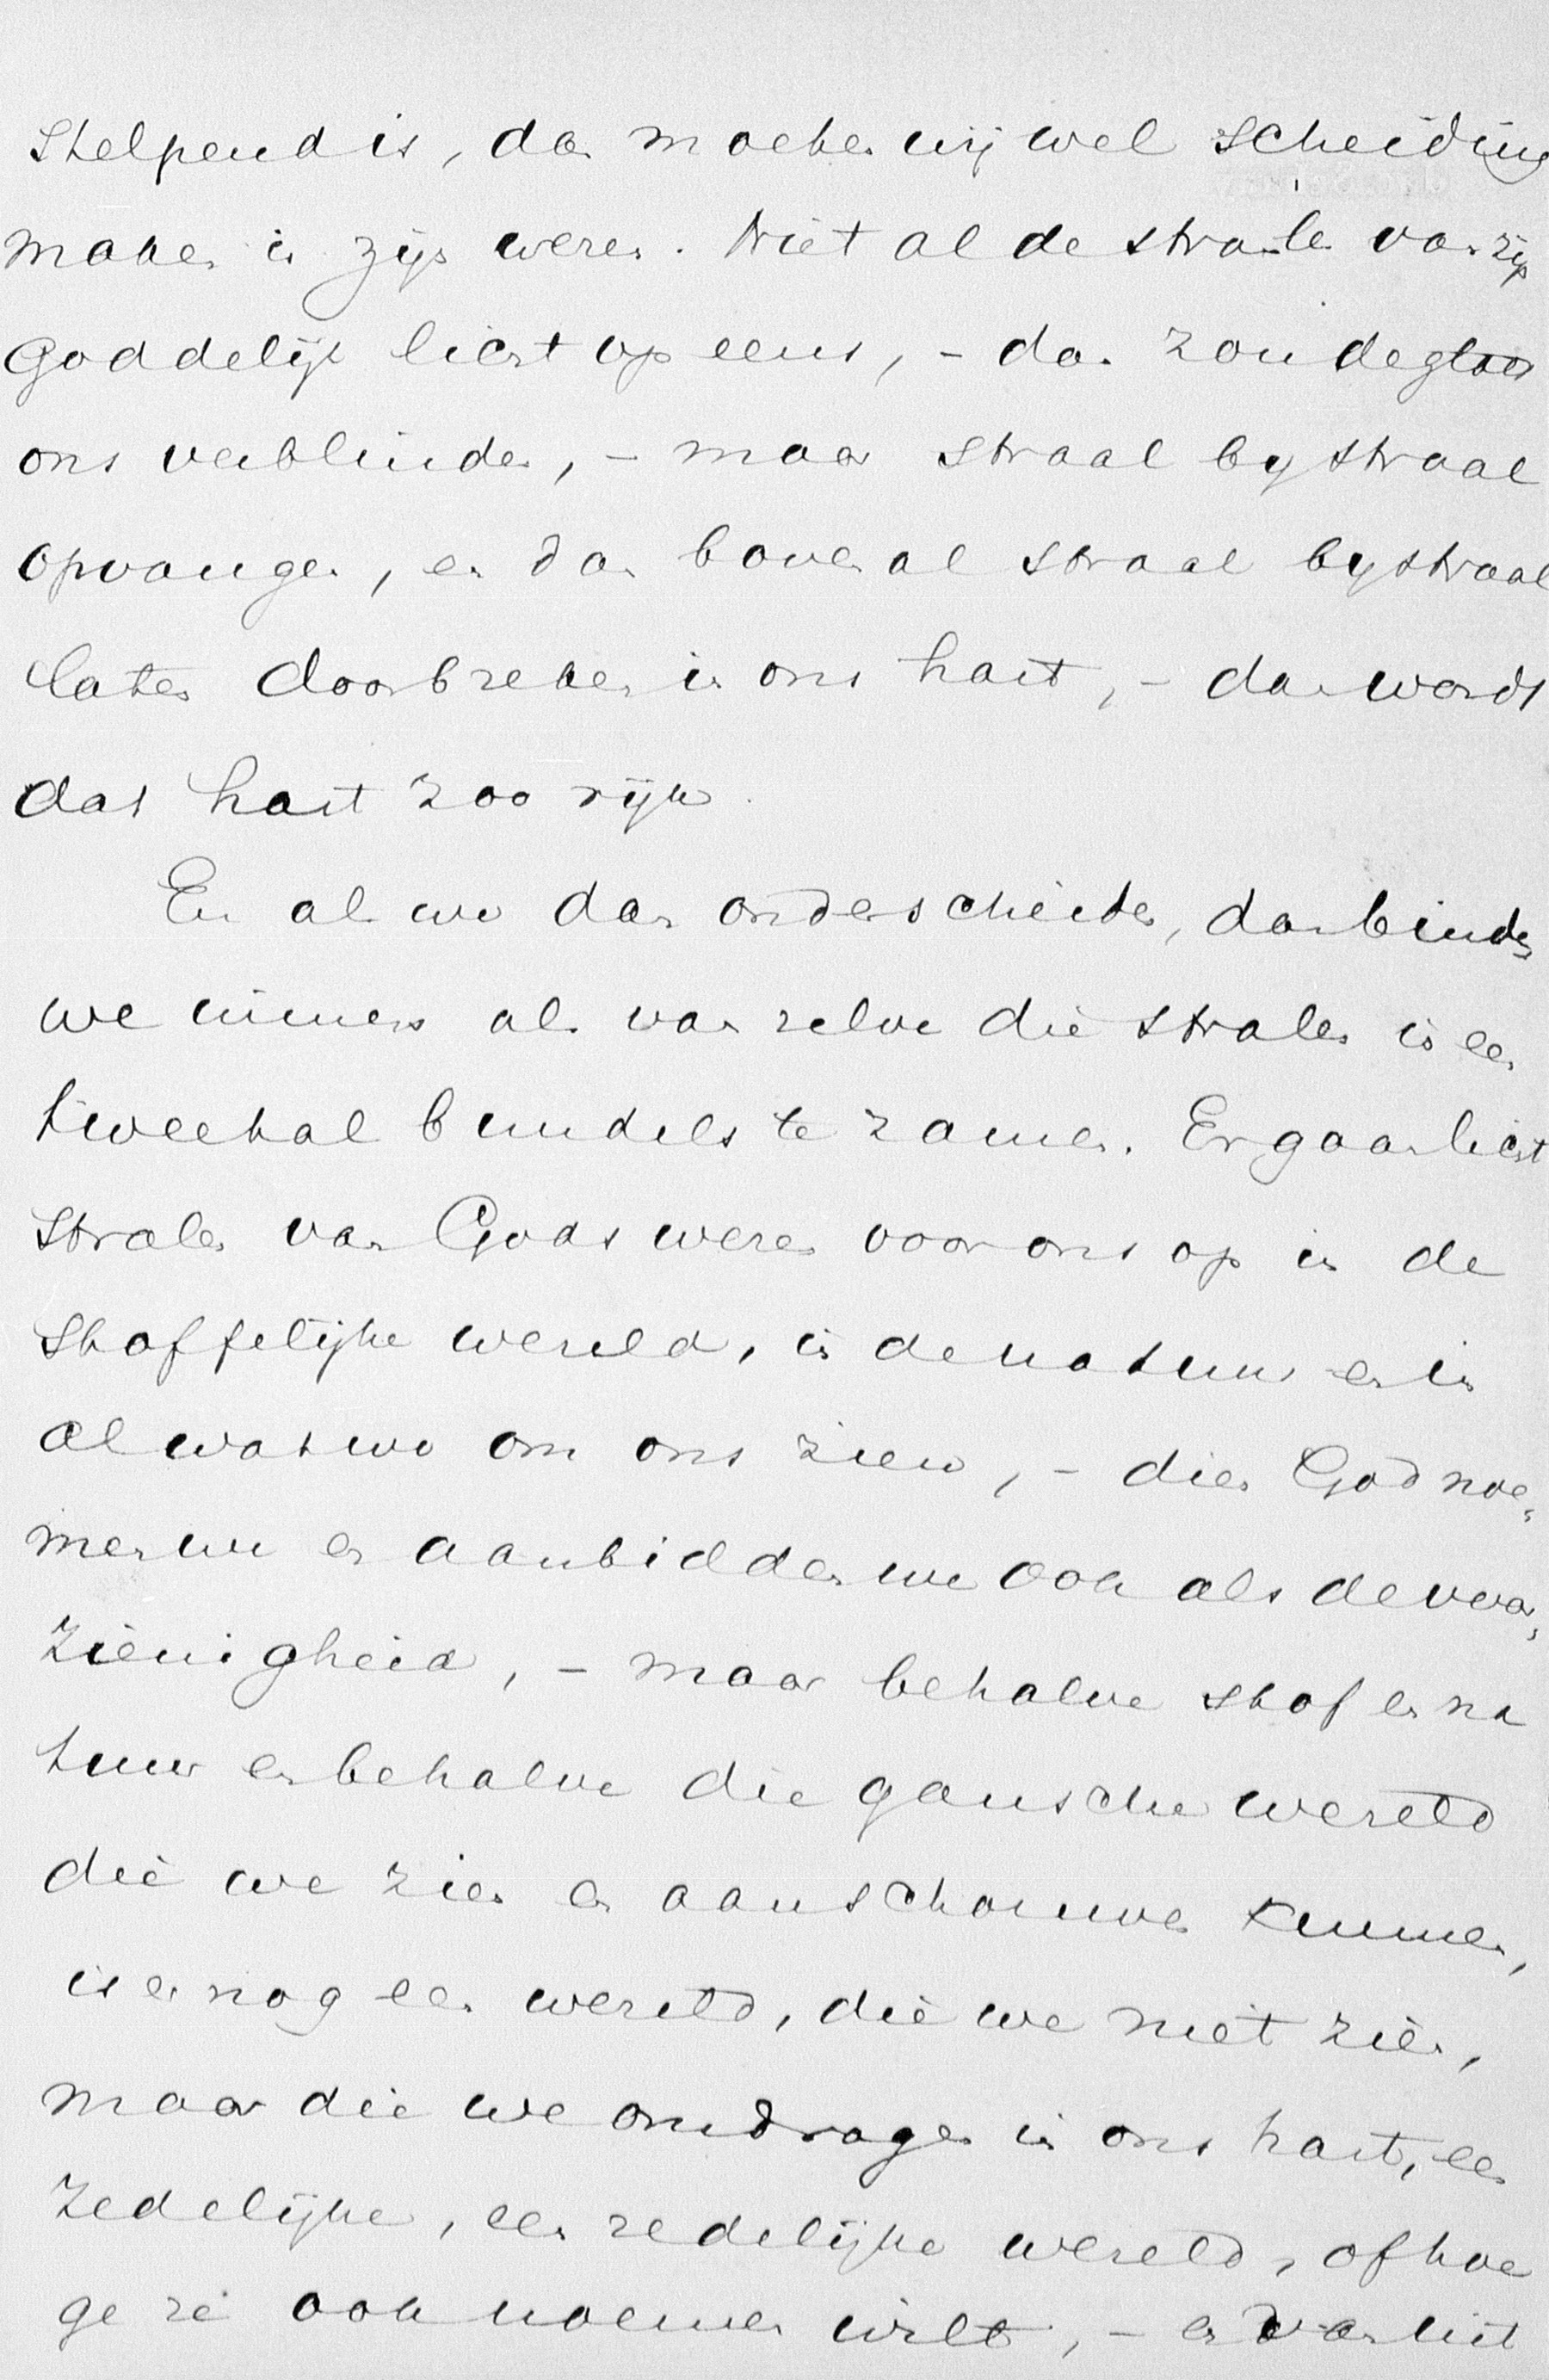 stelpend is, dan moeten wij wel scheiding
maken in zijn werken. Niet al de stralen van zijn
Goddelijk licht op eens, – dan zou de glans
ons verblinden, – maar straal by straal
opvangen, en dan bovenal straal by straal
laten doorbreken in ons hart, – dan wordt
dat hart zoo rijk.
En als we dan onderscheiden, dan binden
we immers als van zelve die stralen in een
tweetal bundels te zamen. Er gaan licht
stralen van Gods werken voor ons op in de
stoffelijke wereld, in de natuur en in
al wat we om ons zien, – dien God noe„
men we en aanbidden we ook als de voor„
zienigheid, – maar behalve stof en na
tuur en behalve die gansche wereld
die we zien en aanschouwen kunnen,
is er nog een wereld, die we niet zien,
maar die we omdragen in ons hart, een
zedelijke, een redelijke wereld, of hoe
ge ze ook noemen wilt, – en van uit